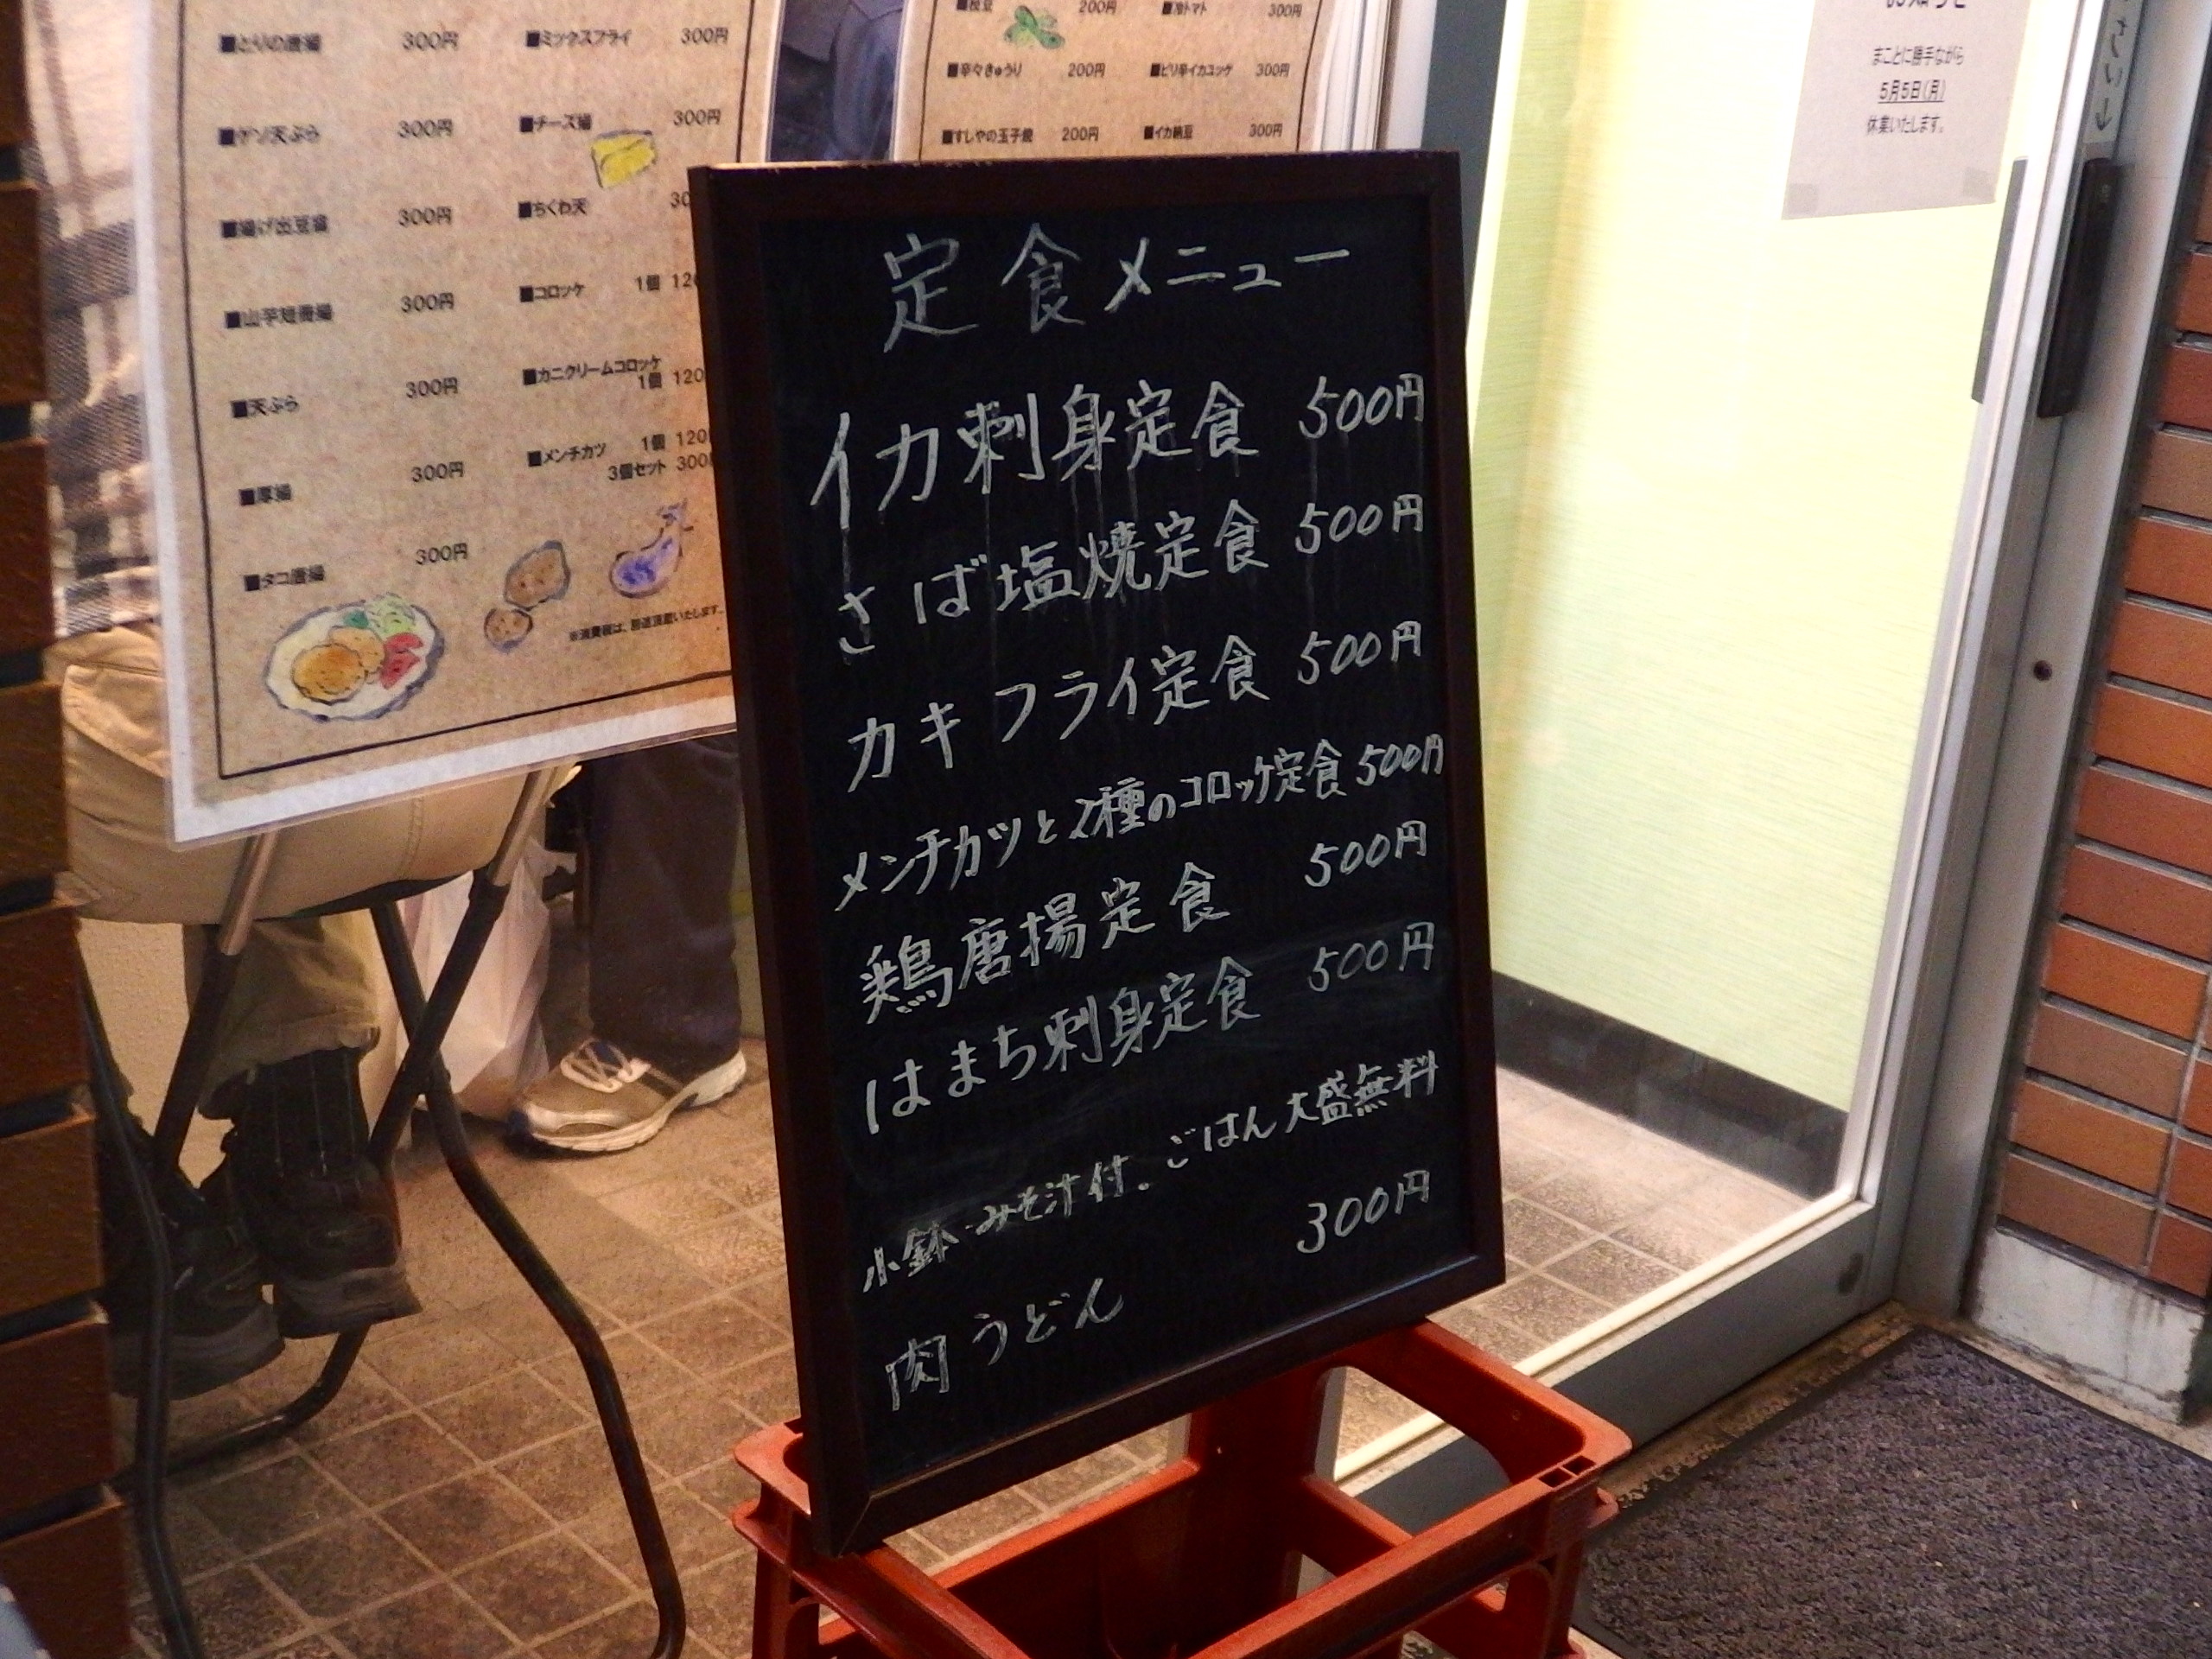 ■とりの唐揚 300円
■ゲソ天ぷら 300円
■揚げ出豆腐 300円
■山芋短冊揚 300円
■天ぷら 300円
■厚揚 300円
■タコ唐揚 300円
■ミックスフライ 300円
■チーズ揚 300円
■ちくわ天 30
■コロッケ 1個 120
■カニクリームコロッケ
1個 120
■メンチカツ 1個 120
3個セット 300
※消費税は、別途頂戴いたします。
■枝豆 200円
■辛々きゅうり 200円
■すしやの玉子焼 200円
■冷トマト 300円
■ピリ辛イカユッケ 300円
■イカ納豆 300円
定食メニュー
イカ刺身定食 500円
さば塩焼定食 500円
カキフライ定食 500円
メンチカツと2種のコロッケ定食 500円
鶏唐揚定食 500円
はまち刺身定食 500円
小鉢・みそ汁付。ごはん大盛無料
肉うどん 300円
お知らせ
まことに勝手ながら
5月5日(月)
休業いたします。
さい↓